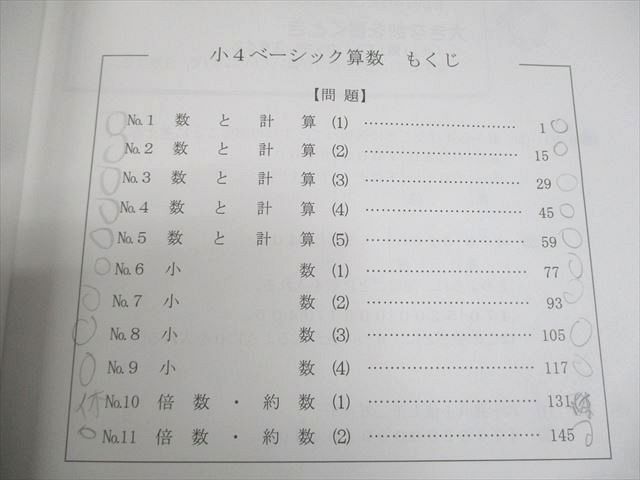 小4ベーシック算数 もくじ
【問題】
№1 数と計算 (1) …………………… 1
№2 数と計算 (2) …………………… 15
№3 数と計算 (3) …………………… 29
№4 数と計算 (4) …………………… 45
№5 数と計算 (5) …………………… 59
№6 小数 (1) …………………… 77
№7 小数 (2) …………………… 93
№8 小数 (3) …………………… 105
№9 小数 (4) …………………… 117
休 №10 倍数・約数 (1) …………………… 131
№11 倍数・約数 (2) …………………… 145